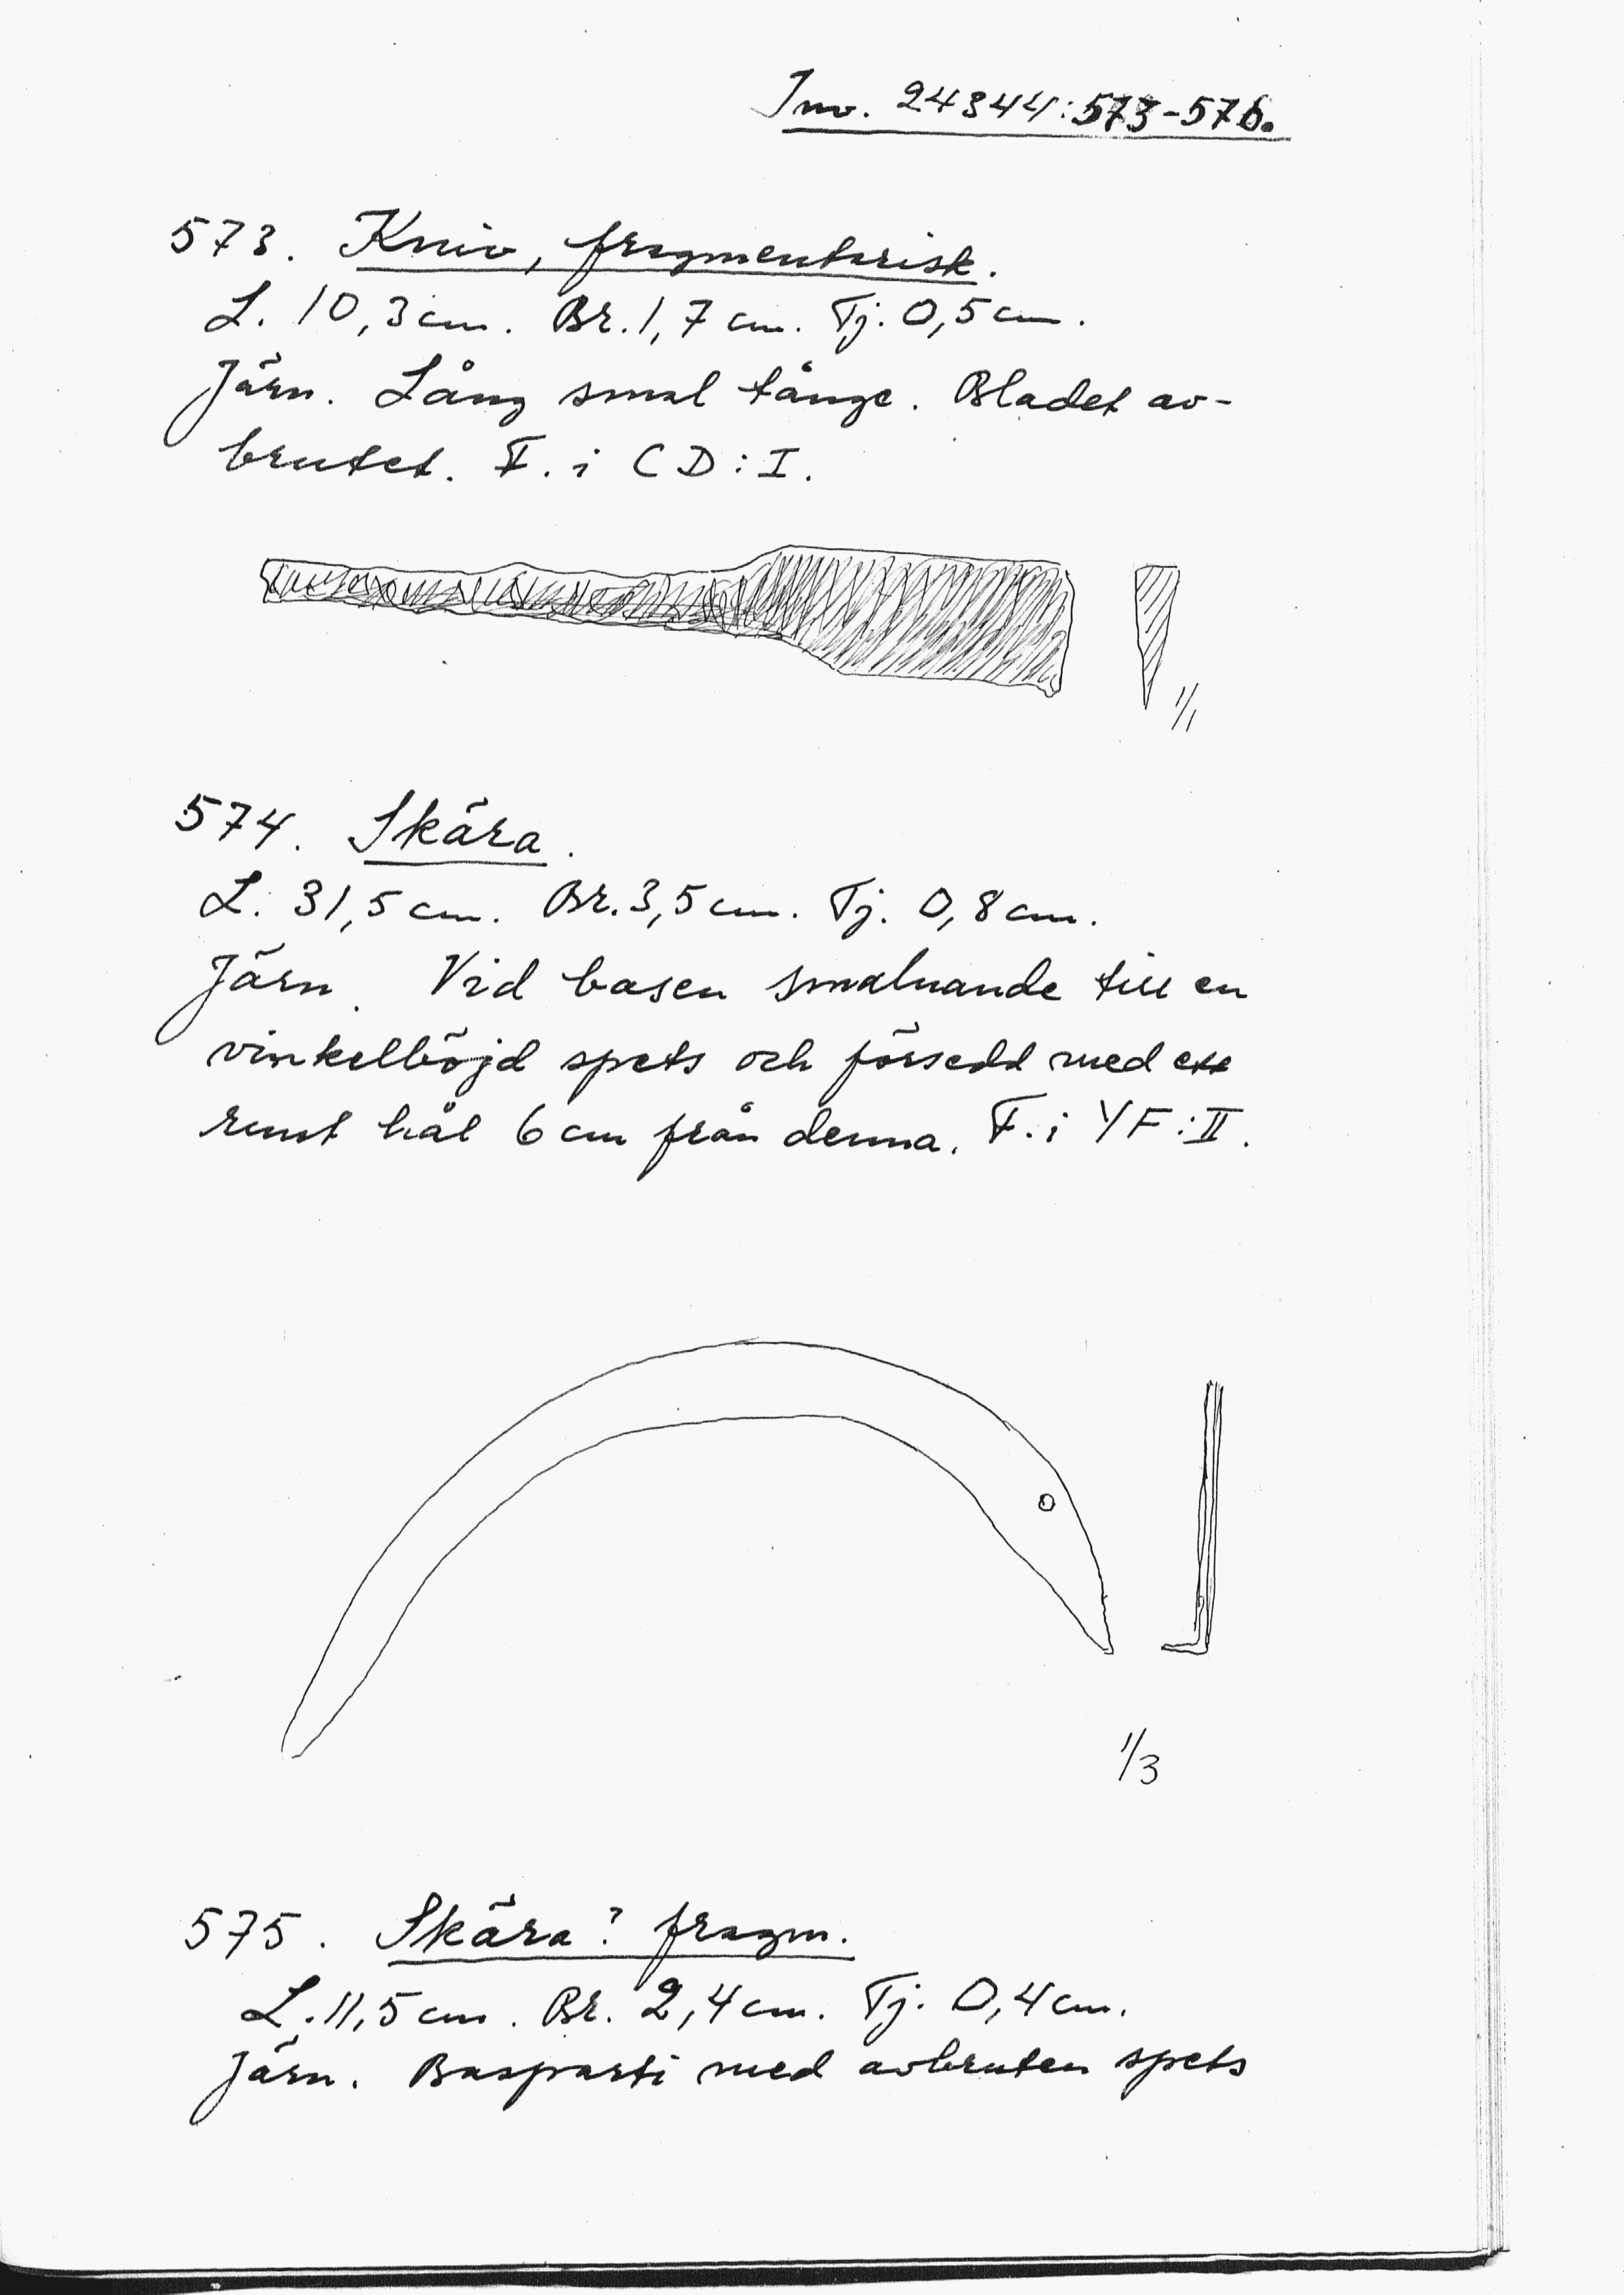 Inv. 24344:573-576.
573. Kniv, fragmentarisk.
L. 10,3 cm. Br. 1,7 cm. Tj. 0,5 cm.
Järn. Lång smal tånge. Bladet av-
brutet. F. i CD:I.
1/1
574. Skära.
L. 31,5 cm. Br. 3,5 cm. Tj. 0,8 cm.
Järn. Vid basen smalnande till en
vinkelböjd spets och försedd med ett
runt hål 6 cm från denna. F. i YF:II.
1/3
575. Skära? fragm.
L. 11,5 cm. Br. 2,4 cm. Tj. 0,4 cm.
Järn. Basparti med avbruten spets